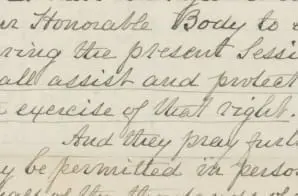 Honorable Body to
ring the present Sessi
all assist and protect
exercise of that right.
And they pray furth
y be permitted in perso
of the